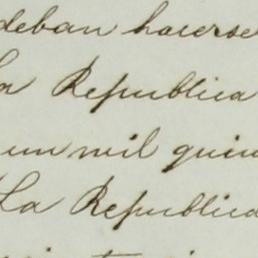 deban hacerse
La Republica
un mil quin
La Republica